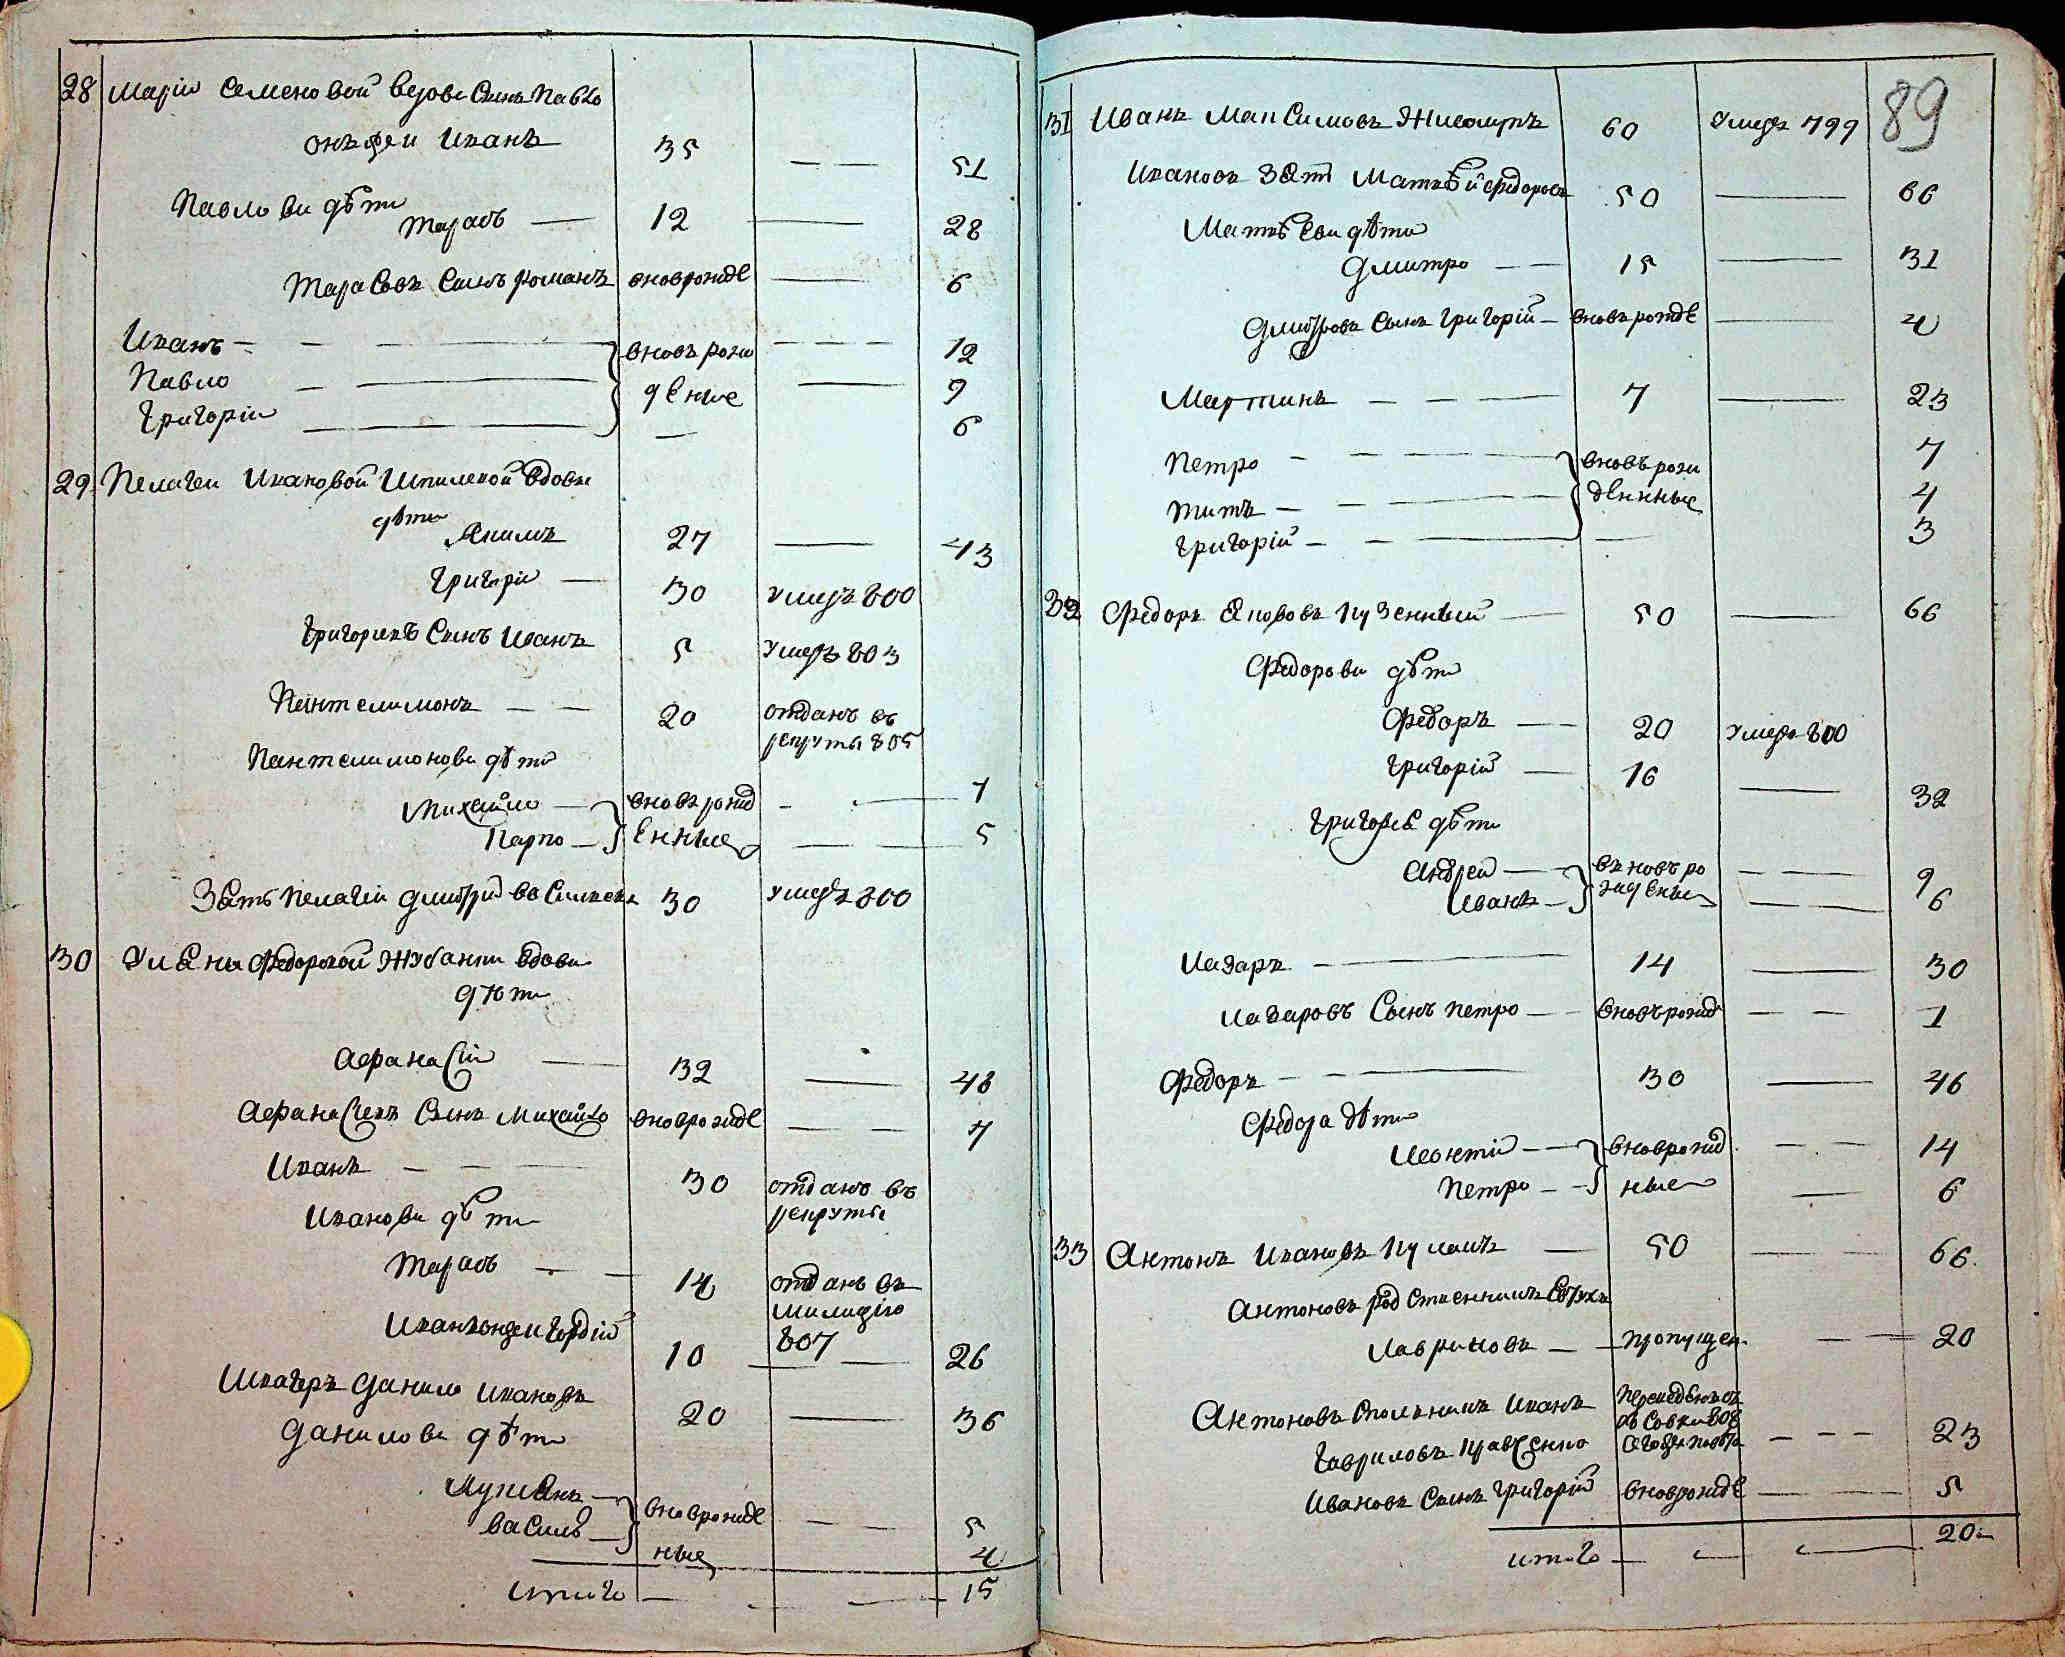 28 Маріи Семеновой вдовы Сынъ Павло
онъ же и Иванъ 35 — — 51
Павловы дѣти
Тарасъ — 12 — 28
Тарасовъ Сынъ Романъ вновьрожде — 6
Иванъ — — — вновь рож — — — 12
Павло — — деные — 9
Григорій — — 6
29 Пелагеи Ивановой вдовы
дѣти
Якимъ 27 — 43
Григорій — 30 умеръ 800
Григориевъ Сынъ Иванъ 5 умеръ 803
Пантелимонъ — — 20 отданъ въ
рекруты 805
Пантелимоновы дѣти
Михайло — вновь рожд — — 7
Карпо — енные — — 5
Зять Пелагіи Дмитрій Васильевъ 30 умеръ 800
30 Улѣяны Федоровой вдовы
дѣти
Афанасій — 32 — 48
Афанасіевъ Сынъ Михайло вноврожде — — 7
Иванъ — — — 30 отданъ въ
рекруты
Ивановы дѣти
Тарасъ — — 14 отданъ въ
милицію
807
Иванъ онже и Гордій 10 — — 26
Швагеръ Данило Ивановъ
20 — 36
Даниловы дѣти
Лукіянъ — вноврожде — — 5
Василь — ные 4
Итого — — — 15
89
31 Иванъ Максимовъ 60 умеръ 799
Ивановъ Зять Матвѣй Федоровъ 50 — 66
Матвѣевы дѣти
Дмитро — — 15 — 31
Дмитровъ Сынъ Григорій — вновь рожде — 4
Мартинъ — — — 7 — 23
Петро — — — вновь рож 7
Титъ — — — денные 4
Григорій — — — — 3
32 Федоръ Яковъ Кузенный — 50 — 66
Федоровы дѣти
Федоръ — 20 умеръ 800
Григорій — 16 — 32
Григоре дѣти
Андрей — вновь ро — — 9
Иванъ — жденые — — 6
Лазаръ — 14 — 30
Лазаровъ Сынъ Петро — — вновьрожд — — 1
Федоръ — — 30 — 46
Федора дѣти
Леонтій — — вноврожд — — 14
Петро — — ные — 6
33 Антонъ Ивановъ Кулишъ — 50 — — 66
Антоновъ родственникъ
Лавриновъ — — пропущен — — 20
Антоновъ Иванъ
Гавриловъ Кравченко — — — 23
Ивановъ Сынъ Григорій вноврожде — — — 5
итого — — — 20